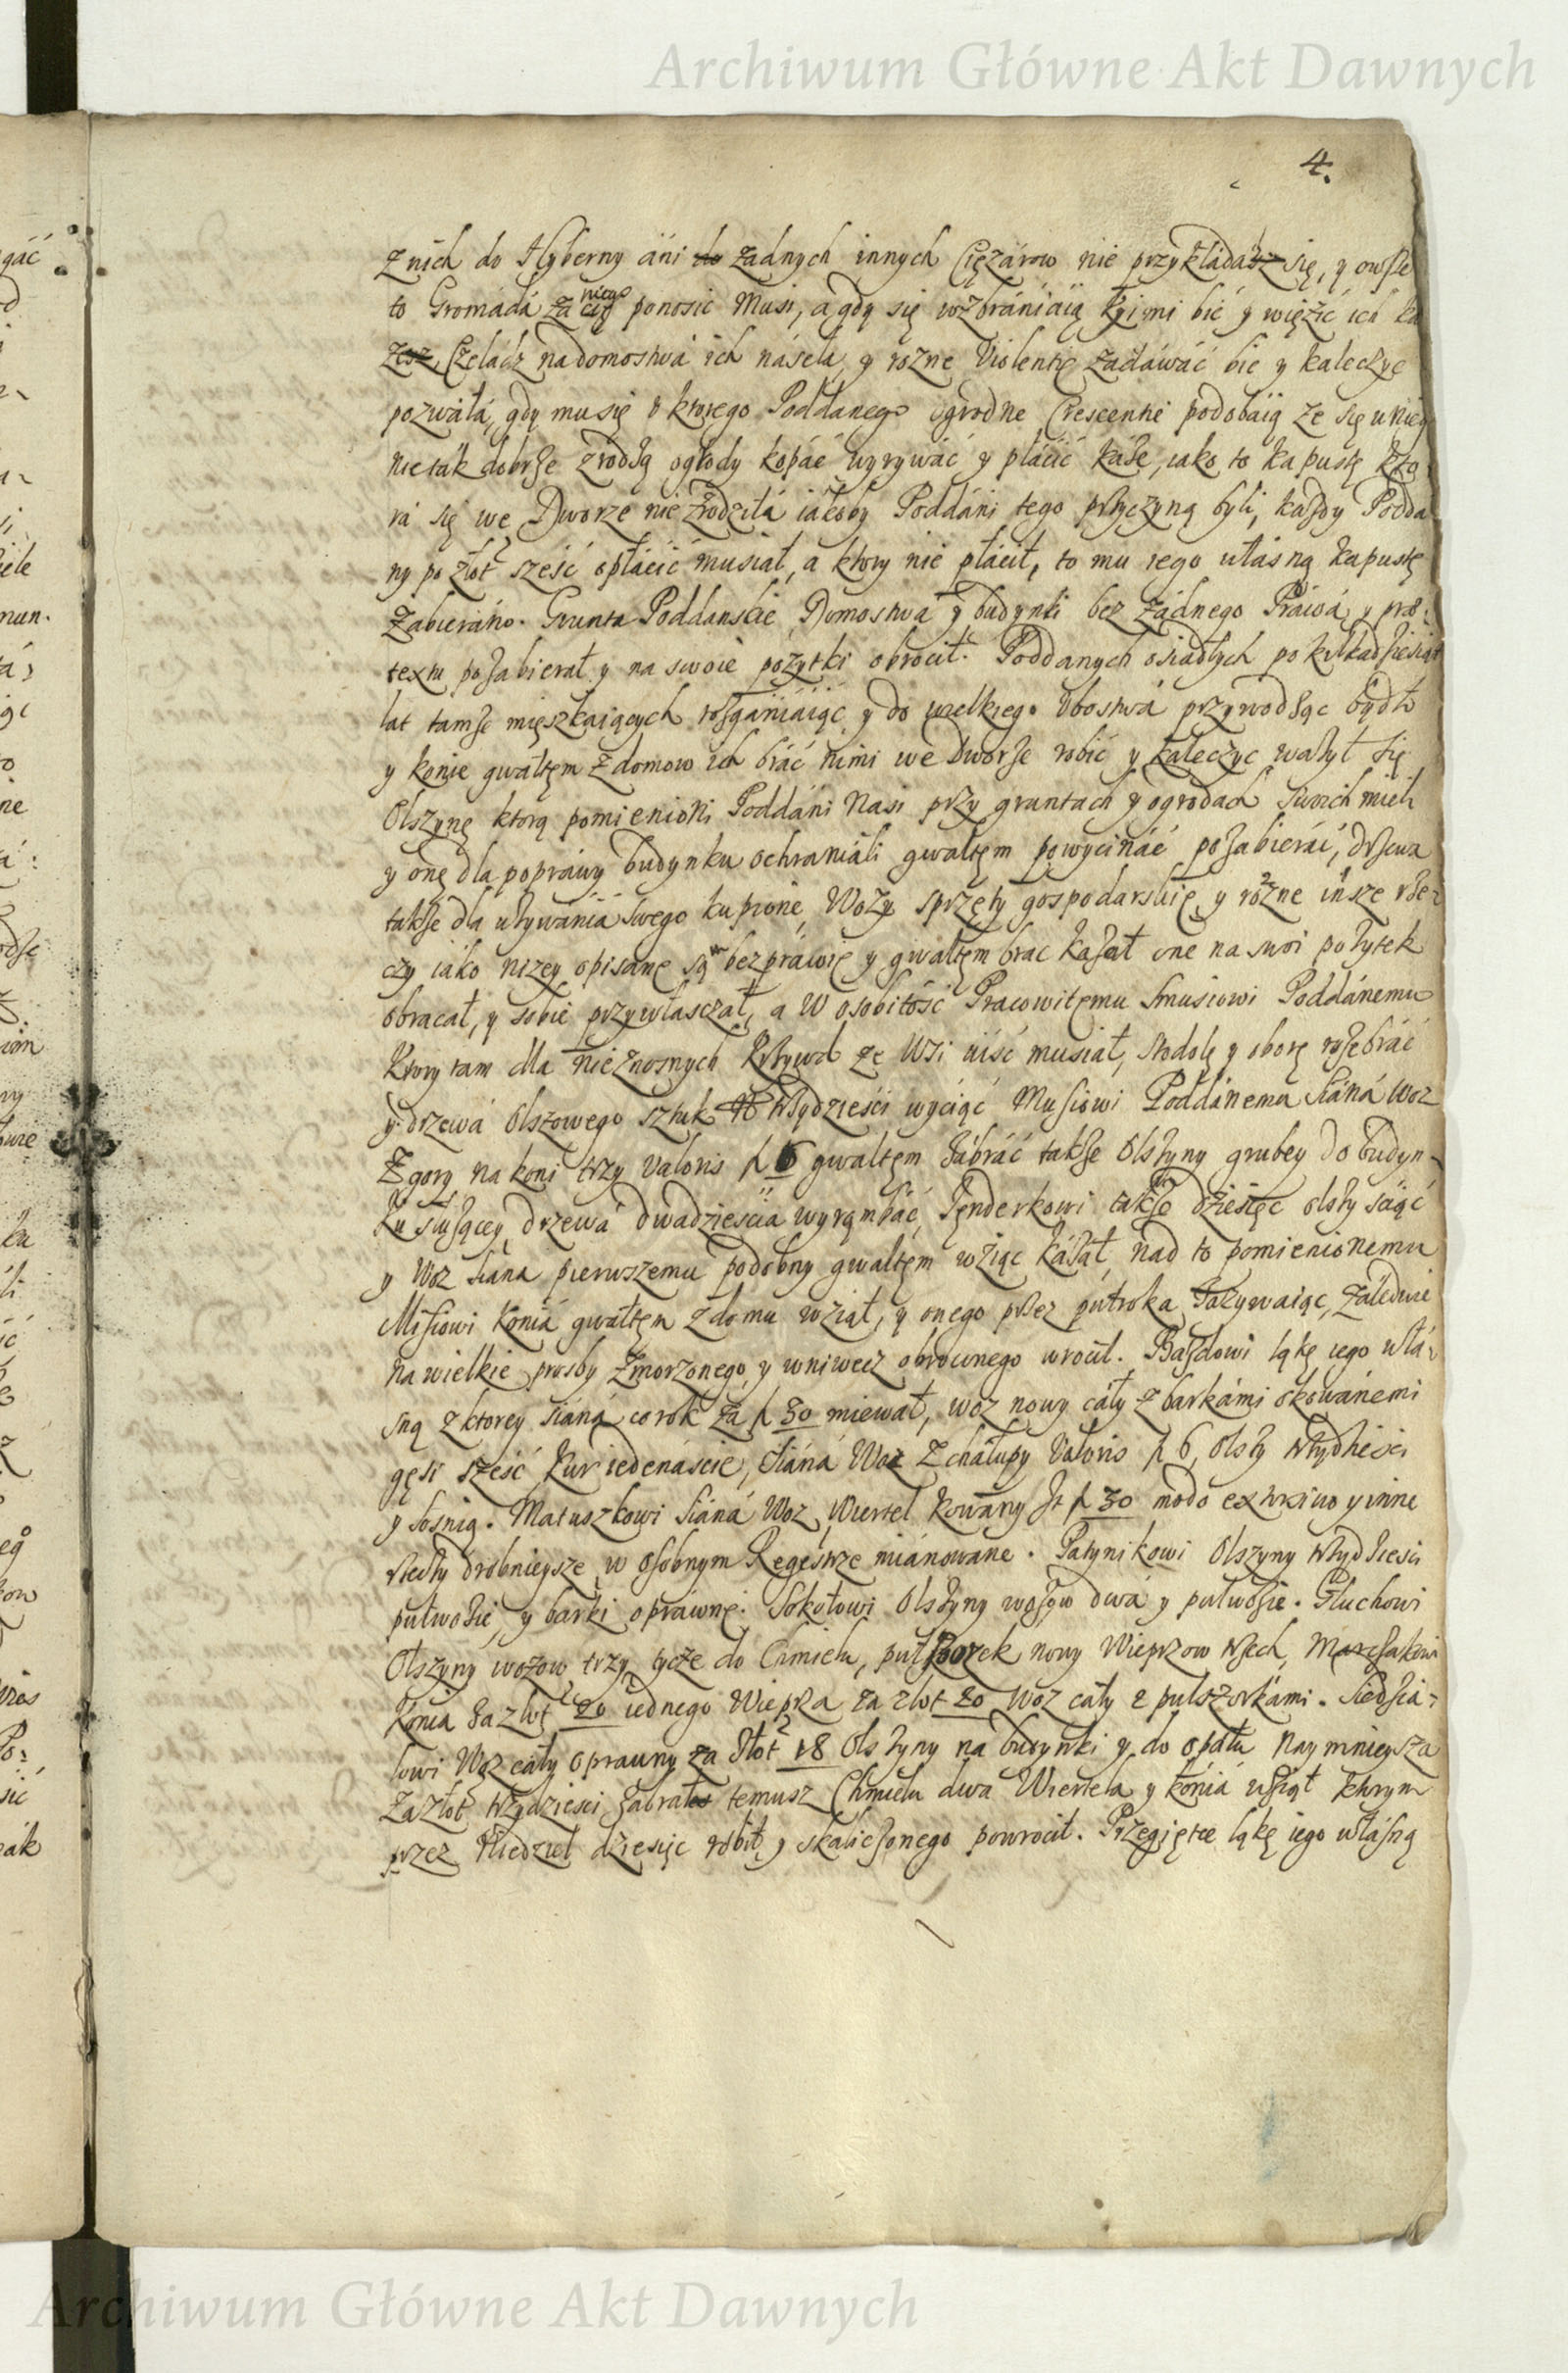 Archiwum Główne Akt Dawnych
4.
z nich do Hyberny áni do żadnych innych Ciężárow nie przykłada się, y owsze
to Gromádá zá niego ponosic Musi, a gdy się wzbrániáią kyimi bić y więzić ich ka
Czeladz na domostwá ich násełá, y rożne Violentię zádáwáć bic y kaleczyc
pozwáłá, gdy mu się v ktorego Poddánego ogrodne Crescentie podobáią że się u niego
nie ták dobrze zrodzą ogrody kopáć wyrywáć y płácić káże, iáko to kapustę kto
rá się we Dworze nie zrodziłá iákoby Poddáni tego przyczyną byli, każdy Podda
ny po złot sześć opłácić musiał, a ktory nie płácił, to mu iego własną kapustę
Zabieráno. Grunta Poddanskie Domostwa y budynki bez żádnego Práwá y prę
textu pozabierał y na swoie pożytki obrocił. Poddanych osiadłych po kilkadziesiąt
lat tamże mięszkaiących rozgániáiąc y do wielkiego Vbostwá przywodząc bydło
y konie gwałtęm z domow ich bráć nimi we Dworze robić y kaleczyc ważył się
Olszynę ktorą pomienioni Poddáni Nasi przy gruntach y ogrodach swoich mieli
y onę dla popráwy budynku ochraniáli gwałtęm powycináć pozabieráć, drzewa
takze dla używániá swego kupione, Wozy sprzęty gospodarskię y rożne insze rze-
czy iáko niżey opisane są bezpráwię y gwałtęm brac kazał one na swoi pożytek
obracał, y sobie przywłasczał, a W osobitość Pracowitemu Smusiowi Poddánemu
Ktory tam dla nieznosnych Krzywd ze Wsi uiść musiał, stodołę y oborę rozebráć
y drzewá olszowego sztuk trzydzieści wyciąć Musiowi Poddánemu Siáná woz
Z gory na koni trzy valoris f 6 gwałtęm zábráć takze Olszyny grubey do budyn-
ku służącey drzewá dwadzieściá wyrąmbáć, Tęnderkowi takze dziesięc olszy ściąć
y Woz siána pierwszemu podobny gwałtęm wziąc kázał, nad to pomienionemu
Misiowi Koniá gwałtęm z domu wziął, y onego przez putroka zażywaiąc, záledwie
na wielkie prosby zmorzonego y wniwecz obrocnego wrocił. Bazdowi łąkę iego włá-
sną z ktorey siáná co rok zá f 30 miewał, woz nowy cáły z barkámi okowánemi
gęsi sześć Kur iedenáście, siáná Woz Z chałupy Valoris f 6, Olszy trzydzieści
y sosnią. Matuszkowi Siáná Woz, Wiertel kowany f 30 modo extraivo y inne
rzeczy drobnieysze w osobnym Regestrze miánowane. Patynikowi Olszyny trzydzieści
pułwozie, y barki opráwnę. Sokołowi Olszyny wozow dwá y pułwozie. Głuchowi
Olszyny wozow trzy, tycze do Chmielu, pułszorek nowy Wieprzow trzech, Marczakowi
Konia za złot 20 iednego Wieprza za złot 20 Woz cáły z pułszorkámi. Siedzia-
łowi Woz cáły oprawny za złot 18 Olszyny na budynki y do opału naymnieysza
Za złot trzydzieści zabrał temusz Chmielu dwa Wiertela y koniá wziął ktorym
przez Niedziel dziesięc robił y skaliczonego powrocił. Przegiętce łąkę iego włásną
Archiwum Główne Akt Dawnych